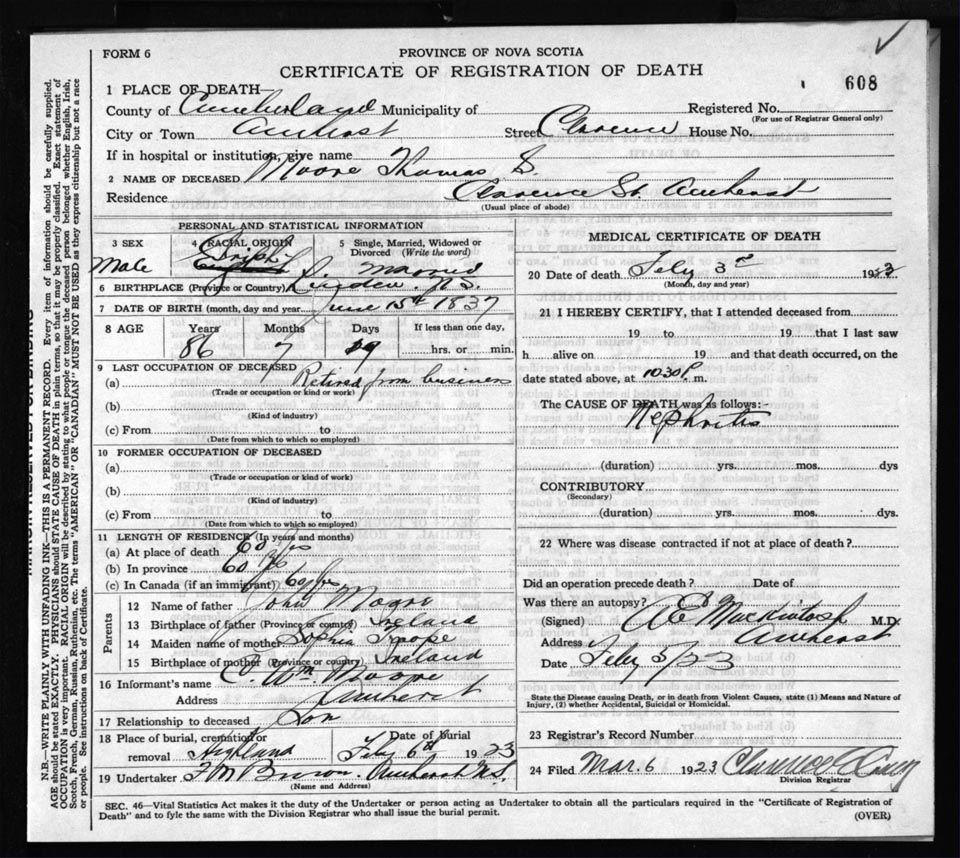 FORM 6
PROVINCE OF NOVA SCOTIA
608
CERTIFICATE OF REGISTRATION OF DEATH
1 PLACE OF DEATH—
County of Cumberland Municipality of Registered No.
(For use of Registrar General only)
City or Town Amherst Street Clarence House No.
If in hospital or institution, give name
2 NAME OF DECEASED Moore Thomas S.
Residence Clarence St. Amherst
(Usual place of abode)
PERSONAL AND STATISTICAL INFORMATION
3 SEX 4 RACIAL ORIGIN 5 Single, Married, Widowed or Divorced (Write the word)
Male Irish Married
6 BIRTHPLACE (Province or Country) Linden N.S.
7 DATE OF BIRTH (month, day and year) June 15th 1837
8 AGE Years Months Days If less than one day,
86 7 19 hrs. or min.
9 LAST OCCUPATION OF DECEASED
(a) Retired from business
(Trade or occupation or kind or work)
(b)
(Kind of industry)
(c) From to
(Date from which to which so employed)
10 FORMER OCCUPATION OF DECEASED
(a)
(Trade or occupation or kind of work)
(b)
(Kind of industry)
(c) From to
(Date from which to which so employed)
11 LENGTH OF RESIDENCE (In years and months)
(a) At place of death 60 yrs
(b) In province 60 yrs
(c) In Canada (if an immigrant) 60 yrs
Parents
12 Name of father John Moore
13 Birthplace of father (Province or country) Ireland
14 Maiden name of mother Sophia
15 Birthplace of mother (Province or country) Ireland
16 Informant's name C. Wm. Moore
Address Amherst
17 Relationship to deceased Son
18 Place of burial, cremation or removal Highland Date of burial Feby 6th 1923
19 Undertaker F M Brown. Amherst N.S.
(Name and Address)
MEDICAL CERTIFICATE OF DEATH
20 Date of death Feby 3rd 1923
(Month, day and year)
21 I HEREBY CERTIFY, that I attended deceased from
19 to 19 that I last saw
h alive on 19 and that death occurred, on the
date stated above, at 10 30 P. m.
The CAUSE OF DEATH was as follows:—
Nephritis
(duration) yrs. mos. dys
CONTRIBUTORY
(Secondary)
(duration) yrs. mos. dys
22 Where was disease contracted if not at place of death?
Did an operation precede death? Date of
Was there an autopsy?
(Signed) A E Mackintosh M.D.
Address Amherst
Date Feby 5/23
State the Disease causing Death, or in death from Violent Causes, state (1) Means and Nature of
Injury, (2) whether Accidental, Suicidal or Homicidal.
23 Registrar's Record Number
24 Filed Mar. 6 1923
Division Registrar
SEC. 46—Vital Statistics Act makes it the duty of the Undertaker or person acting as Undertaker to obtain all the particulars required in the "Certificate of Registration of
Death" and to fyle the same with the Division Registrar who shall issue the burial permit.
(OVER)
N.B.—WRITE PLAINLY WITH UNFADING INK—THIS IS A PERMANENT RECORD. Every item of information should be carefully supplied.
AGE should be stated EXACTLY. PHYSICIANS should STATE CAUSE OF DEATH in plain terms, so that it may be properly classified. Exact statement of
OCCUPATION is very important. RACIAL ORIGIN will be described by stating to what people or tongue the deceased person belonged whether English, Irish,
Scotch, French, German, Russian, Ruthenian, etc. The terms "AMERICAN" or "CANADIAN" MUST NOT BE USED as they express citizenship but not a race
or people. See instructions on back of Certificate.